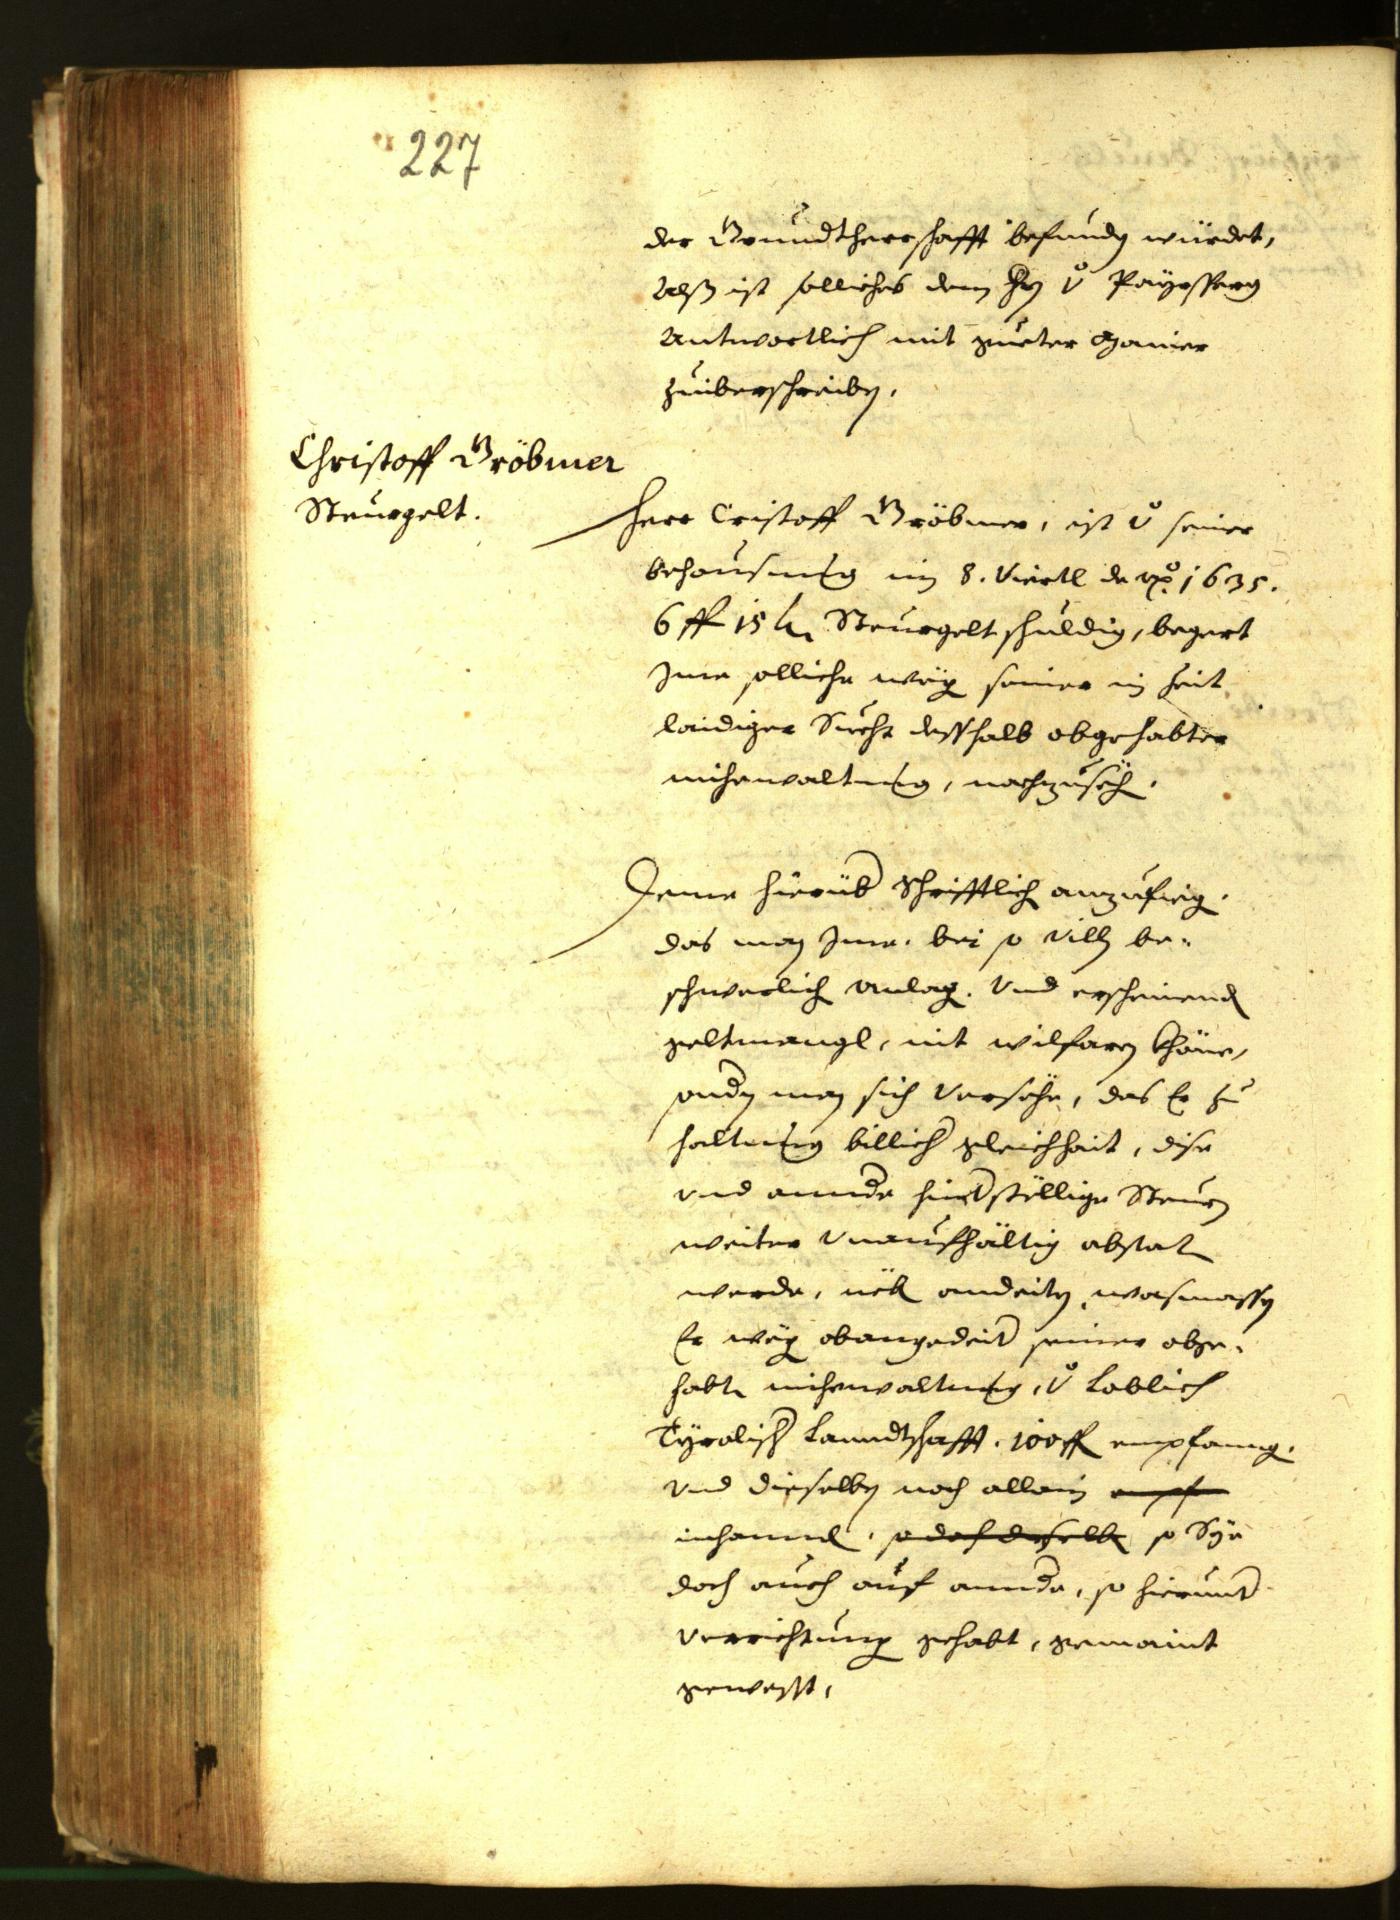 227
der Grundtherrschafft befundn würdet,
Alß ist solliches dem Hrn v Payrsperg
Antwortlich mit gueter Manier
zuüberschreibn.
Christoff Gröbmer
Steurgelt.
Herr Cristoff Gröbmer, ist v seiner
behausung im 8. Viertl de ao 1635.
6 ff 15 kr Steurgelt schuldig, begert
Ime solliche weg seiner in Zeit
laidiger Sucht desshalb obgehabter
mihewaltung, nachzusech.
Deme hierüb schrifftlich anzufieg.
das man Ime. bei so villn be-
schwerlich anlag. Und erscheinend
geltmangl, nit wilfarn khöne,
sondn man sich versehe, das Er zu
haltung billich gleichhait, dise
und annde hindstellige Steurn
weiter unaufheltig abstat
werde, andeitn, wasmassn
Er weg obangedeit seiner obge-
habtn mihewaltung, v Loblich
Tyrolisch Lanndtschafft. 100 ff empfanng.
Und dieselbn noch allain empf
inhannd. so dieselb so Sye
doch auch auf annde, so hierunt
verrichtung gehabt, gemaint
gewesst,